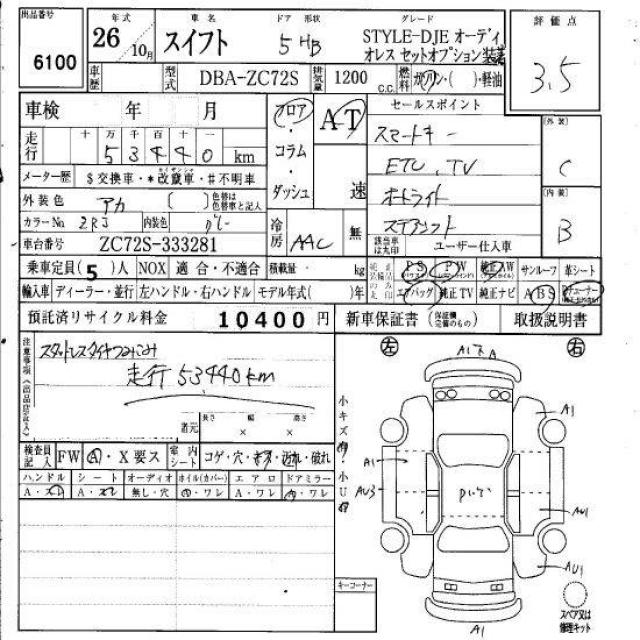 出品番号 6100
年式 26年 10月
車名 スイフト
ドア 形状 5 HB
グレード STYLE-DJE オーディオレス セットオプション装着
評価点 3.5
車歴
型式 DBA-ZC72S
排気量 1200 C.C.
燃料 ガソリン・( )・軽油
車検 年 月
フロア・コラム・ダッシュ
AT 速
セールスポイント
スマートキー
ETC, TV
オートライト
[外装] C
[内装] B
走行 十万千百十一
53440 km
メーター歴 $交換車・*改竄車・#不明車
外装色 アカ ( )
カラーNo. ZRJ 内装色 グレー
車台番号 ZC72S-333281
冷房 AAC 無
該当車は丸印 ユーザー仕入車
乗車定員(5)人 NOX 適合・不適合 積載量 kg
PS PW 純正AW サンルーフ 革シート
輸入車 ディーラー・並行 左ハンドル・右ハンドル モデル年式( )年
エアバッグ 純正TV 純正ナビ ABS
預託済リサイクル料金 10400円
新車保証書 (保証機 完備のもの) 取扱説明書
注意事項(出品店記入)
スタッドレスタイヤつみこみ
走行 53440km
諸元 長さ × 幅 × 高さ
検査員記入 FW A・X要ス 室内シート コゲ・穴・キズ・汚れ・破れ
ハンドル シート オーディオ ホイル(カバー) エアロ ドアミラー
A・スレ A・スレ 無し・穴 A・ワレ A・ワレ A・ワレ
左 右
小キズ有・小U有
A1 A
A1
A1
AU3
AU1
AU1
A1
キーコーナー
スペア又は修理キット